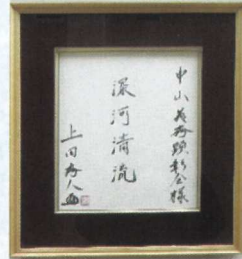 中山義秀顕彰会様
深河清流
上田